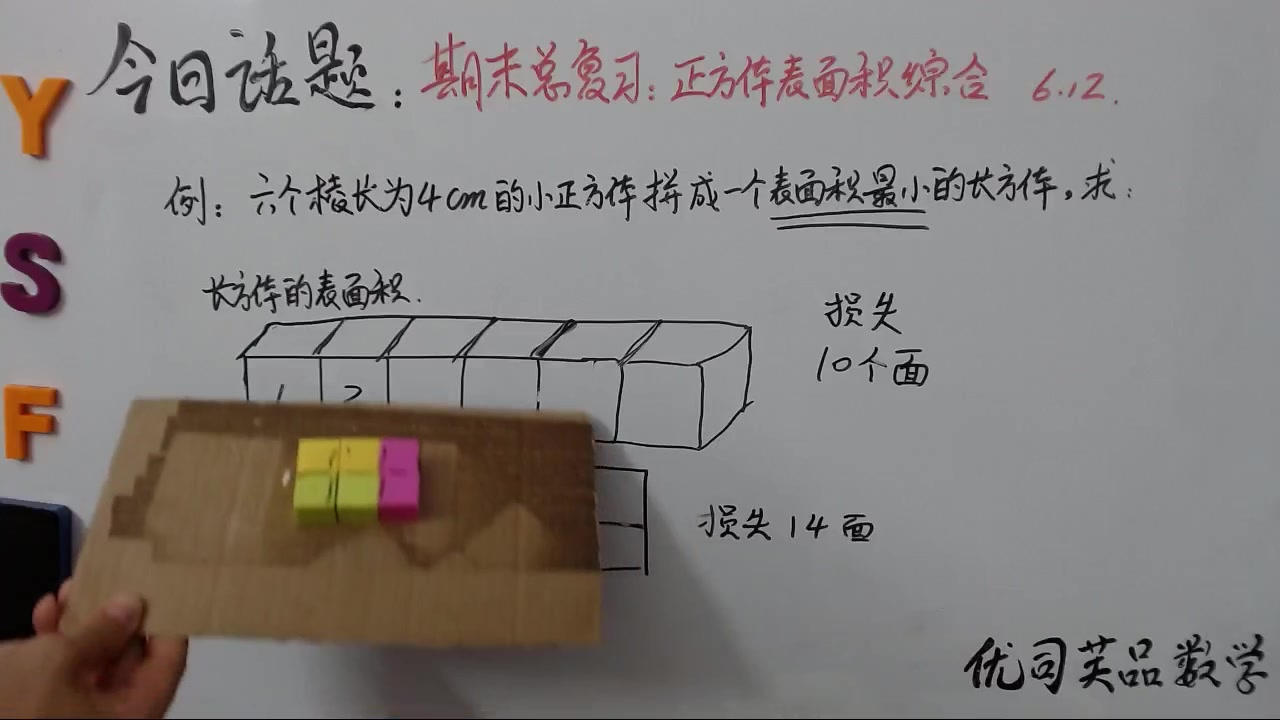 今日话题：期末总复习：正方体表面积综合 6.12.
Y
S
F
例：六个棱长为4cm的小正方体拼成一个表面积最小的长方体，求：
长方体的表面积.
损失
10个面
1 2
损失14面
优司芙品数学